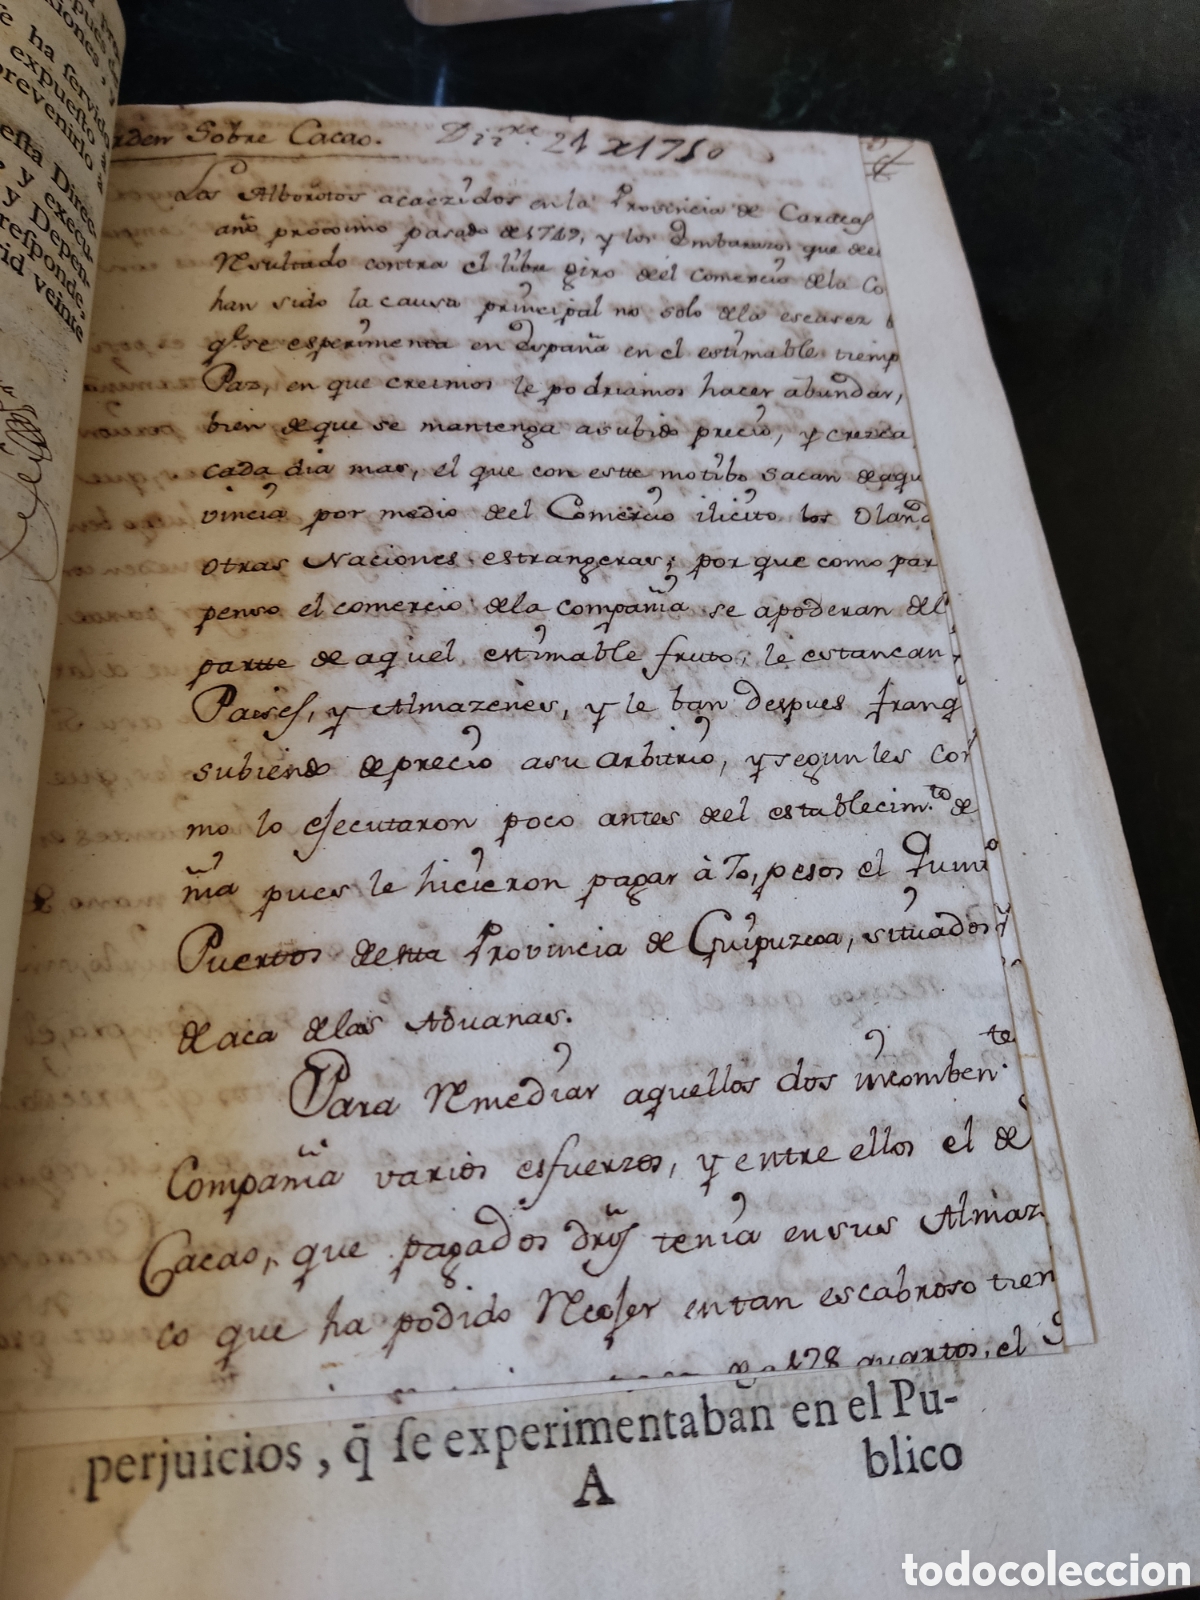 pues
xiones, y
e ha ſervido
expueſto a
prevenirlo a
eſta Direc-
y execu-
y Depen-
reſponde,
rid veinte
rden Sobre Cacao. Diz.re 21 1750
Los Alborotos acaezidos en la Provincia de Caracas
año proximo pasado de 1749, y los Embarazos que de
Resultado contra el libre giro del comercio de la Co
han sido la causa principal no solo de la escasez
q.e se esperimenta en España en el estimable tiemp
Paz, en que creimos le podriamos hacer abundar,
bien de que se mantenga a subido precio, y crezca
cada dia mas, el que con este motibo sacan de aqu
vincia por medio del Comercio ilicito los Oland
otras Naciones estrangeras; por que como par
penso el comercio de la compañia se apoderan del
parte de aquel estimable fruto; le estancan
Paises, y Almazenes, y le ban despues franq
subiendo de precio a su arbitrio, y segun les con
mo lo ejecutaron poco antes del establecim.to de
ñia pues le hicieron pagar à 70, pesos el
Puertos de esta Provincia de Guipuzcoa, situados
de aca de las Aduanas.
Para Remediar aquellos dos incomben.tes
Compañia varios esfuerzos, y entre ellos el de
Cacao, que pagados tenia en sus Almaz
co que ha podido Recojer en tan escabroso tiem
178 quartos, el
perjuicios, q̄ ſe experimentaban en el Pu-
A blico
todocoleccion